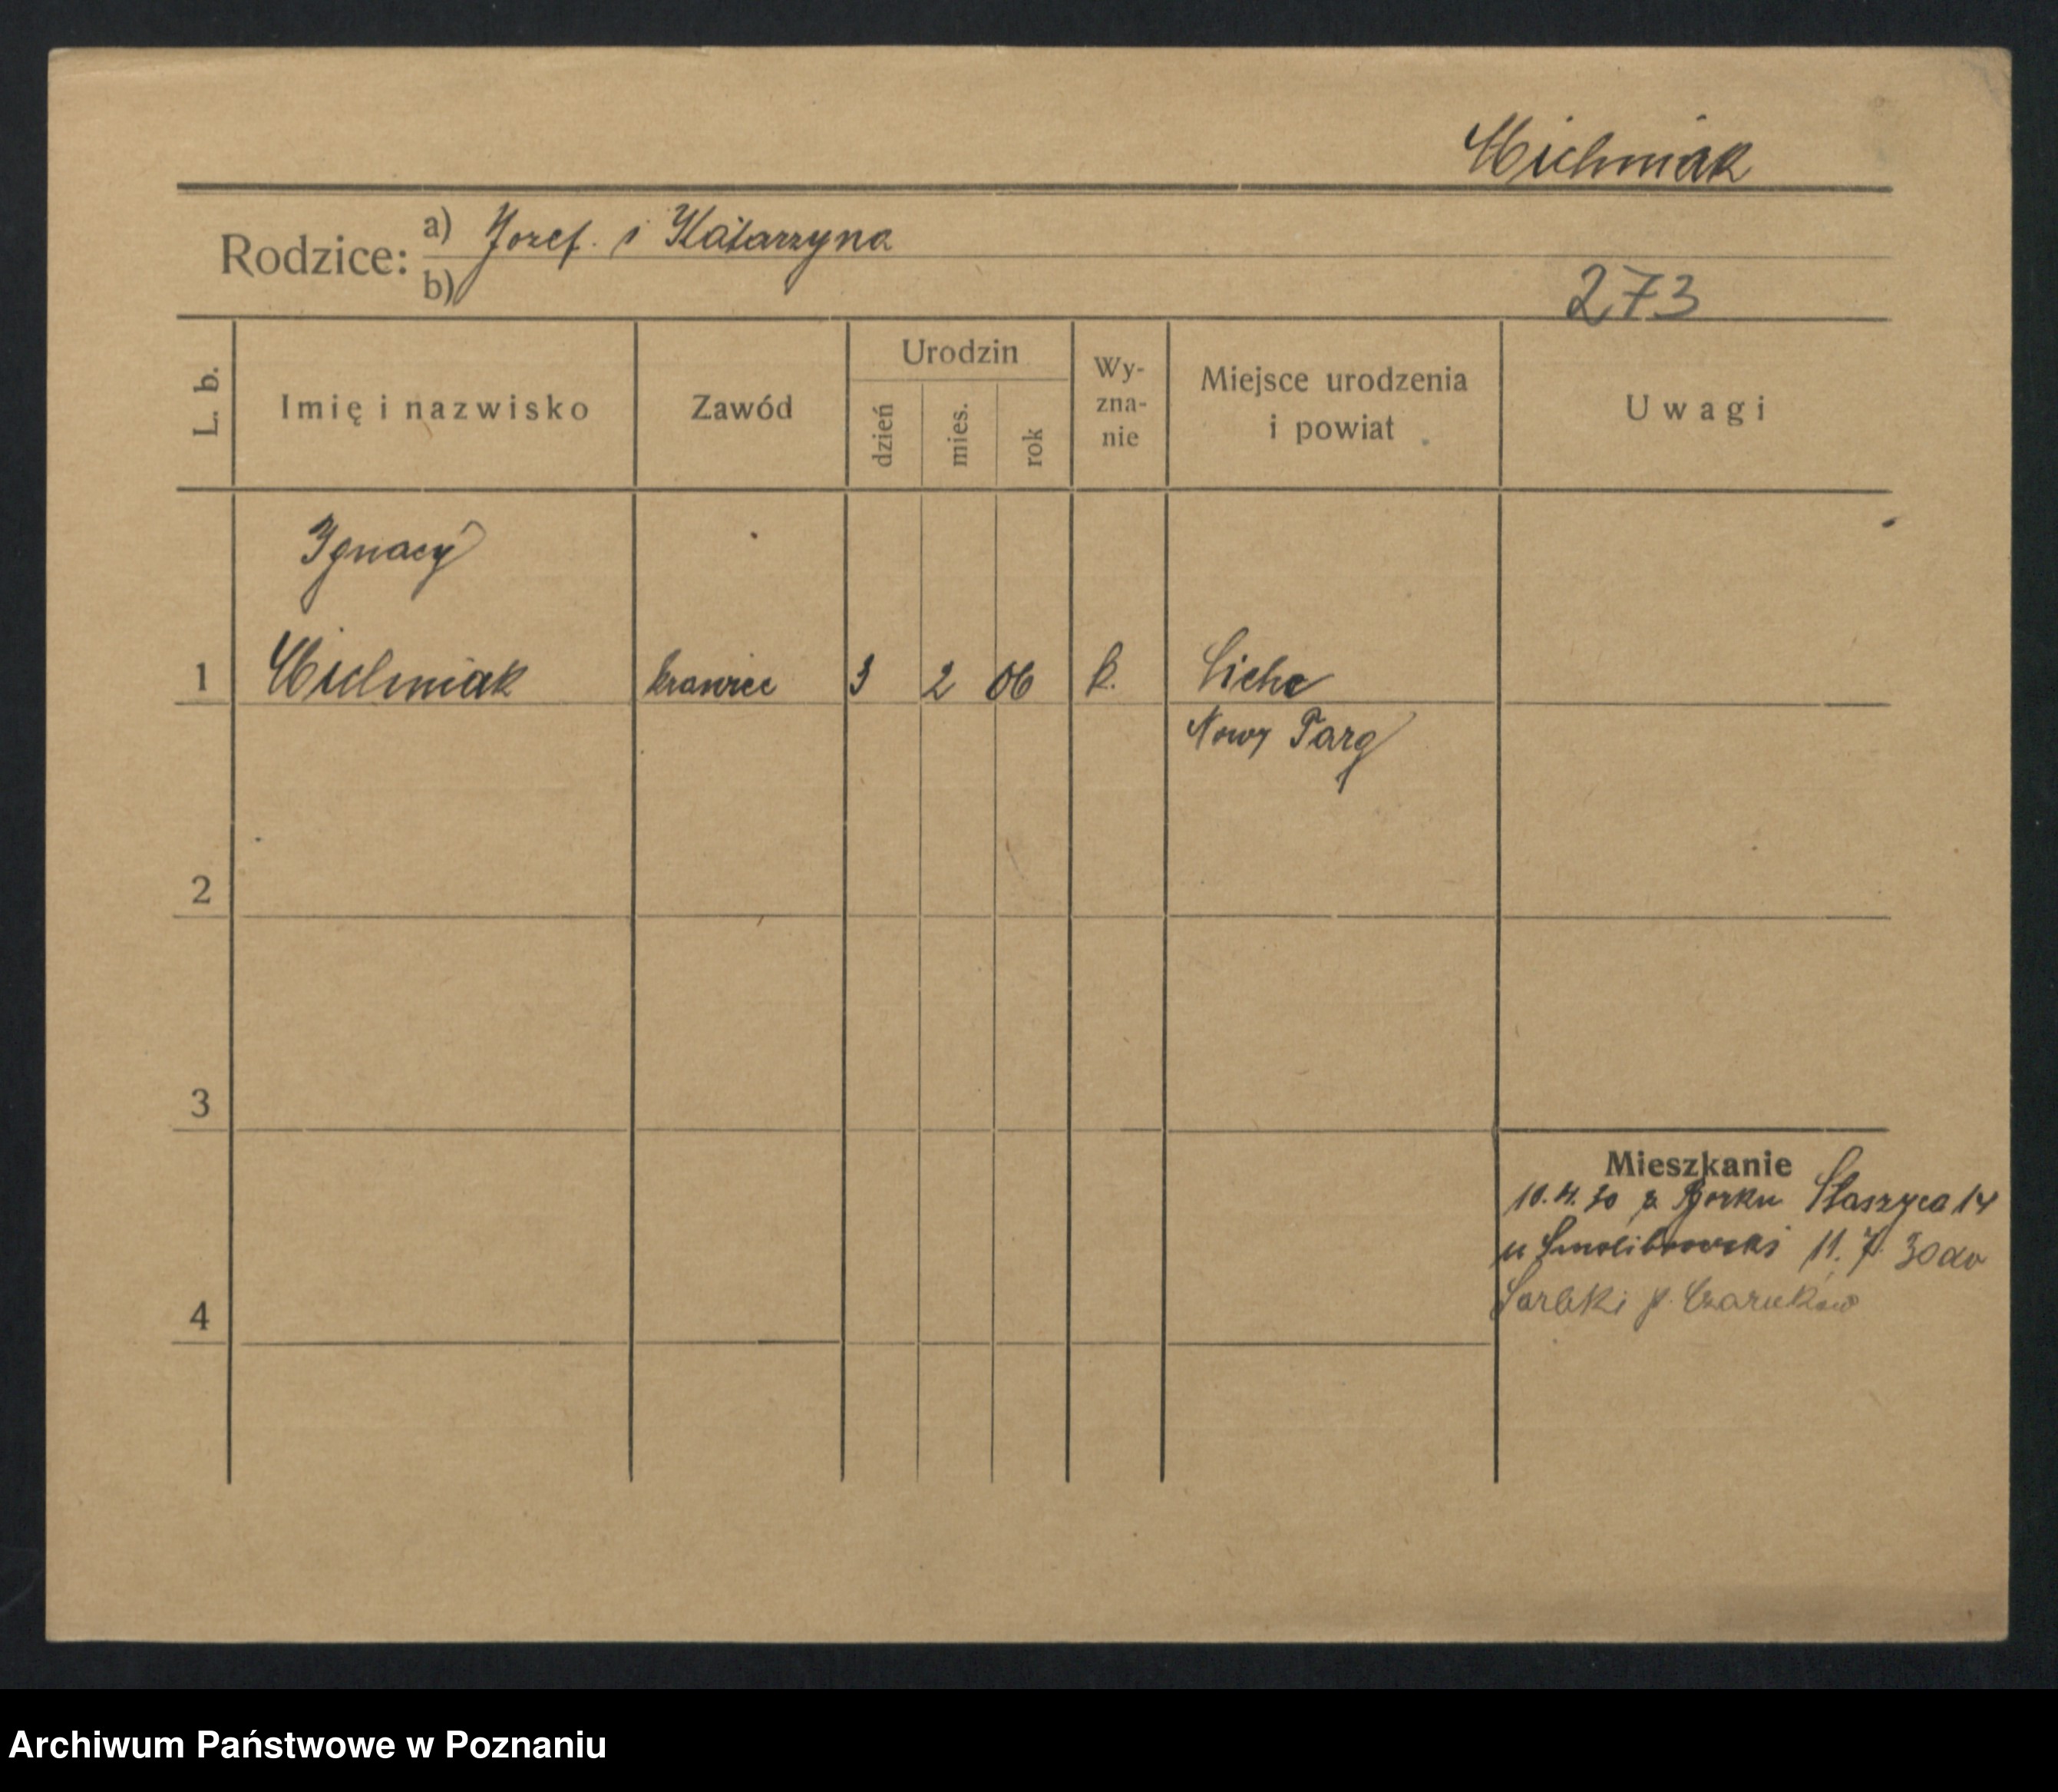 Michniak
Rodzice: a) Jozef. i Katarzyna
b)
273
L. b.
Imię i nazwisko
Zawód
Urodzin
dzień
mies.
rok
Wy-
zna-
nie
Miejsce urodzenia
i powiat
Uwagi
Ignacy
1 Michniak krawiec 3 2 06 k. Ciche
Nowy Targ
2
3
Mieszkanie
10. 4. 30 z Borku Staszyca 14
u 11. 7. 30 do
Sarbki p. Czarnków
4
Archiwum Państwowe w Poznaniu